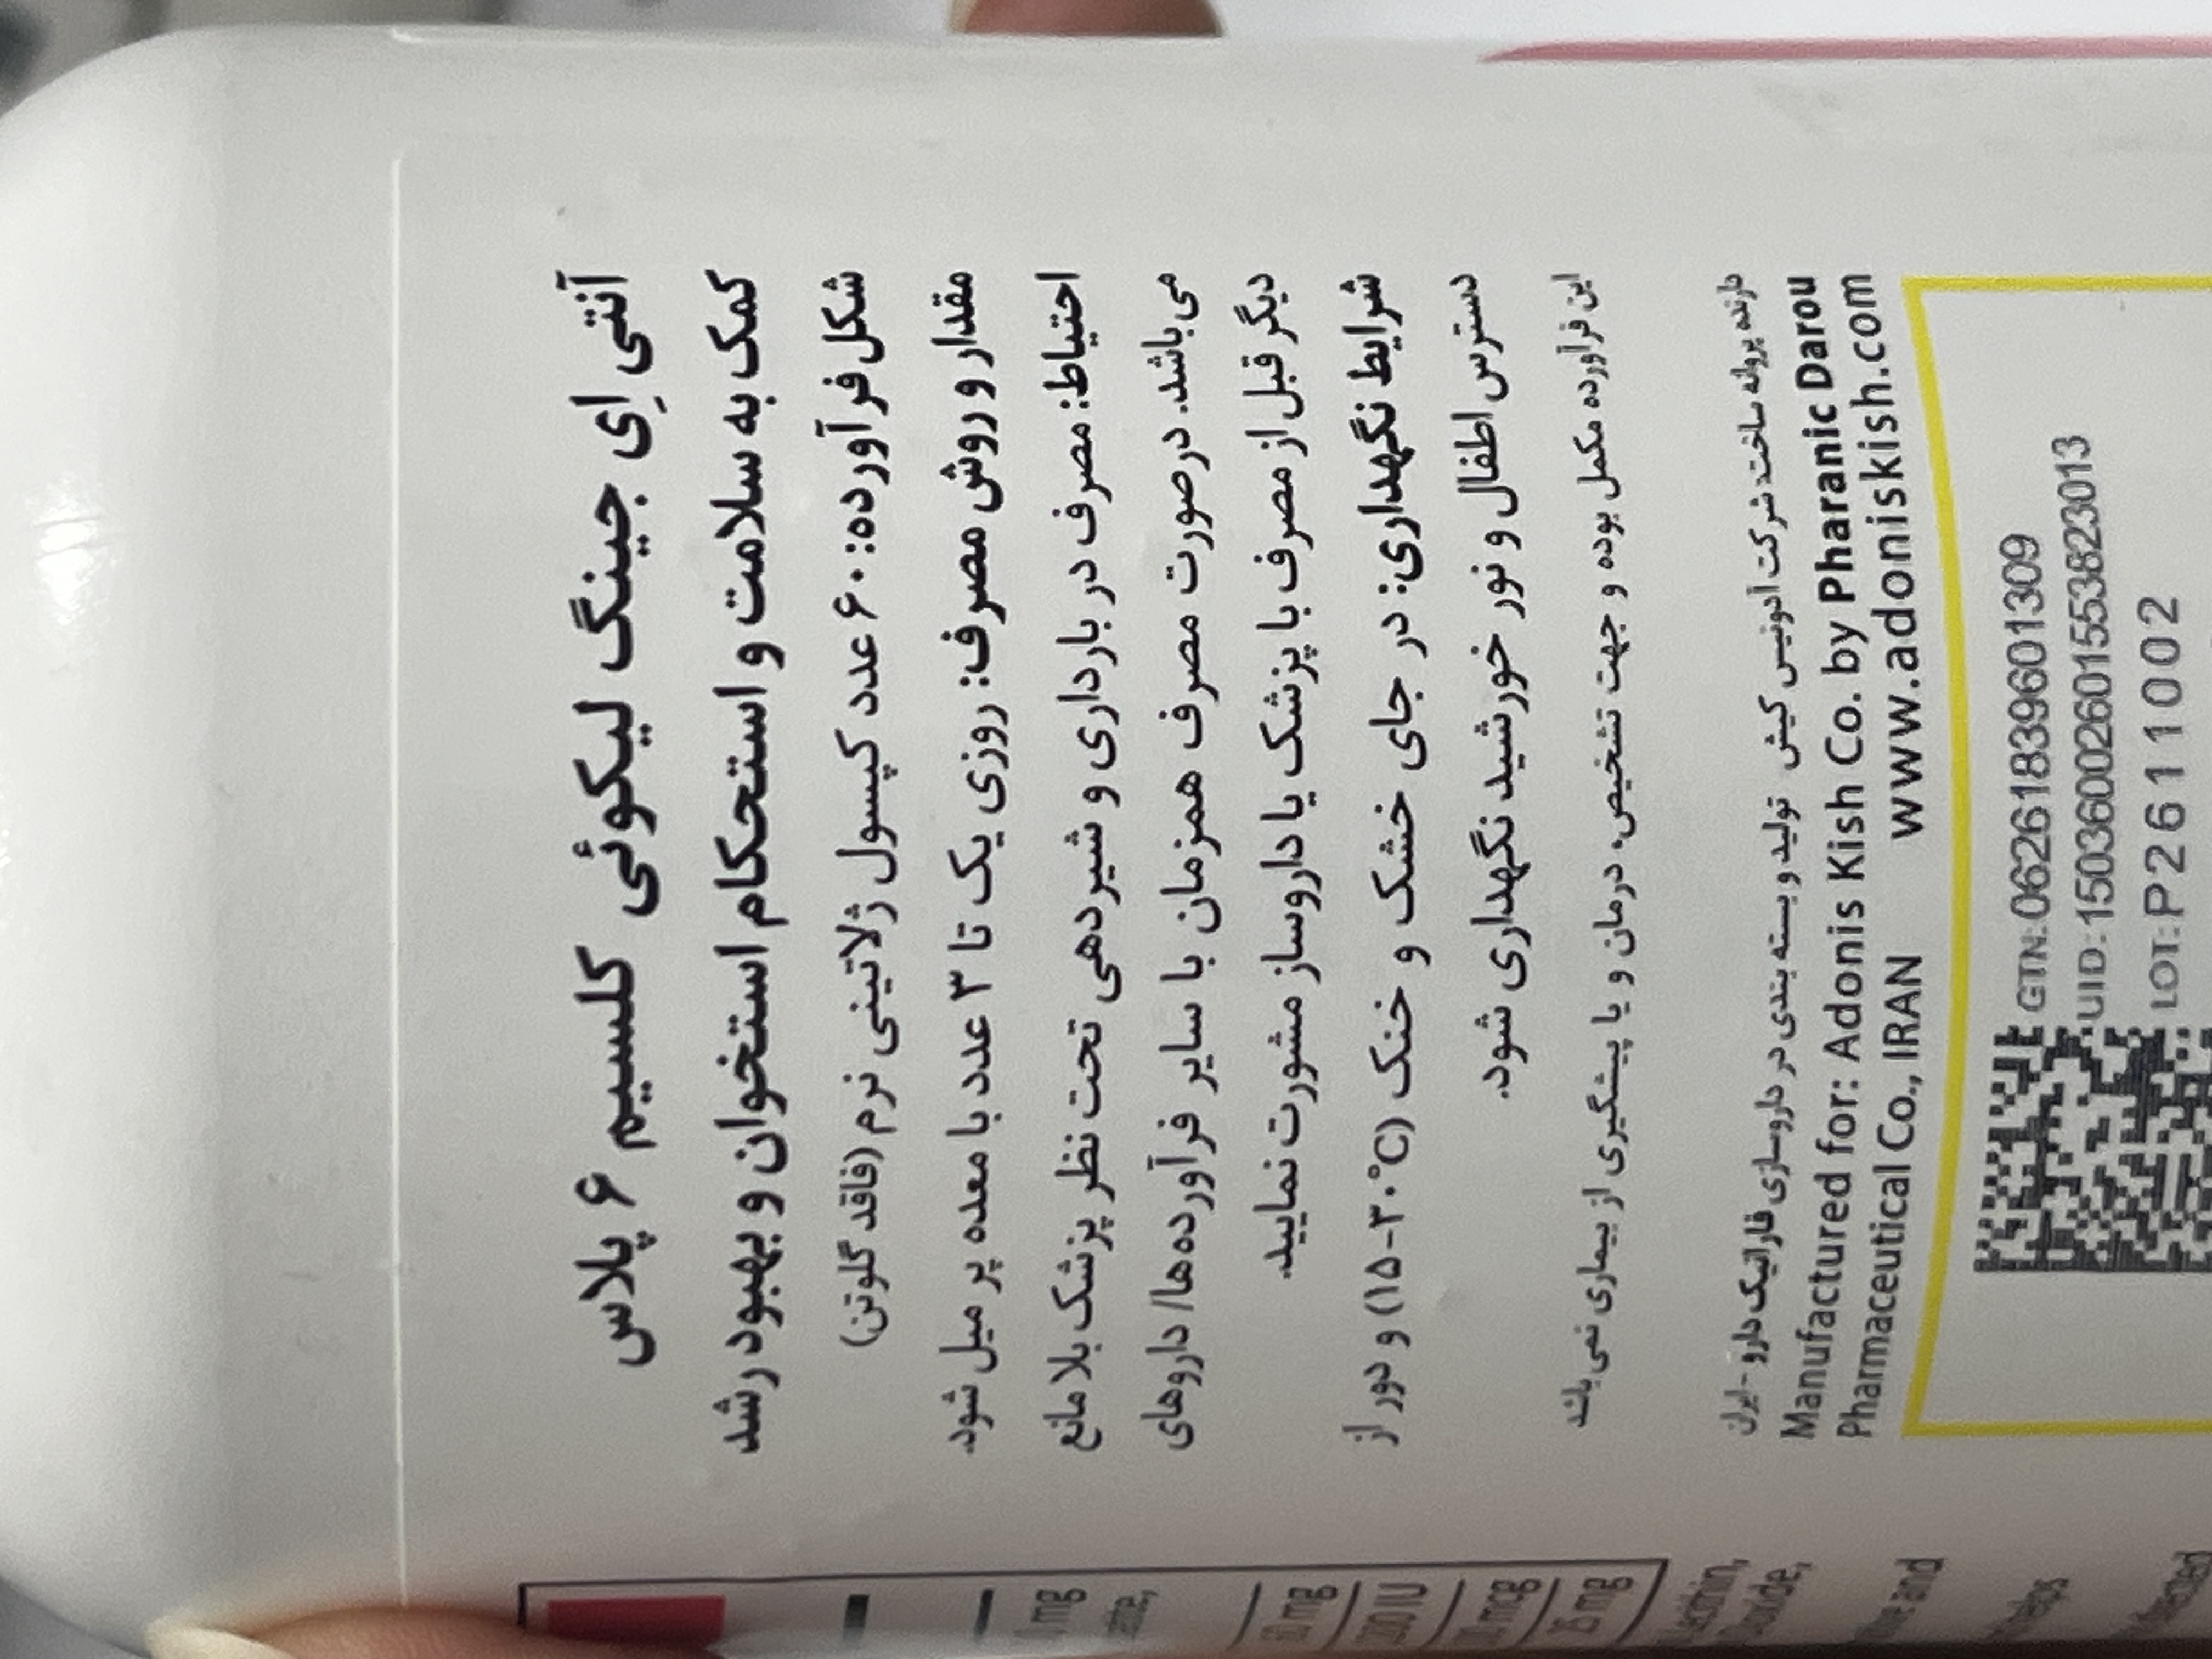 آنتی اِی جینگ لیکوئی کلسیم ۶ پلاس
کمک به سلامت و استحکام استخوان و بهبود رشد
شکل فرآورده: ۶۰ عدد کپسول ژلاتینی نرم (فاقد گلوتن)
مقدار و روش مصرف: روزی یک تا ۳ عدد با معده پر میل شود.
احتیاط: مصرف در بارداری و شیردهی تحت نظر پزشک بلامانع
می‌باشد. درصورت مصرف همزمان با سایر فرآورده‌ها/ داروهای
دیگر قبل از مصرف با پزشک یا داروساز مشورت نمایید.
شرایط نگهداری: در جای خشک و خنک (۱۵-۳۰°C) و دور از
دسترس اطفال و نور خورشید نگهداری شود.
این فرآورده مکمل بوده و جهت تشخیص، درمان و یا پیشگیری از بیماری نمی‌باشد
دارنده پروانه ساخت: شرکت آدونیس کیش تولید و بسته بندی در داروسازی فارانیک دارو - ایران
Manufactured for: Adonis Kish Co. by Pharanic Darou
Pharmaceutical Co., IRAN www.adoniskish.com
GTN:06261839601309
UID:15036002601553823013
LOT:P2611002
mg
mg
IU
mcg
25 mg
Lecithin,
and
helps